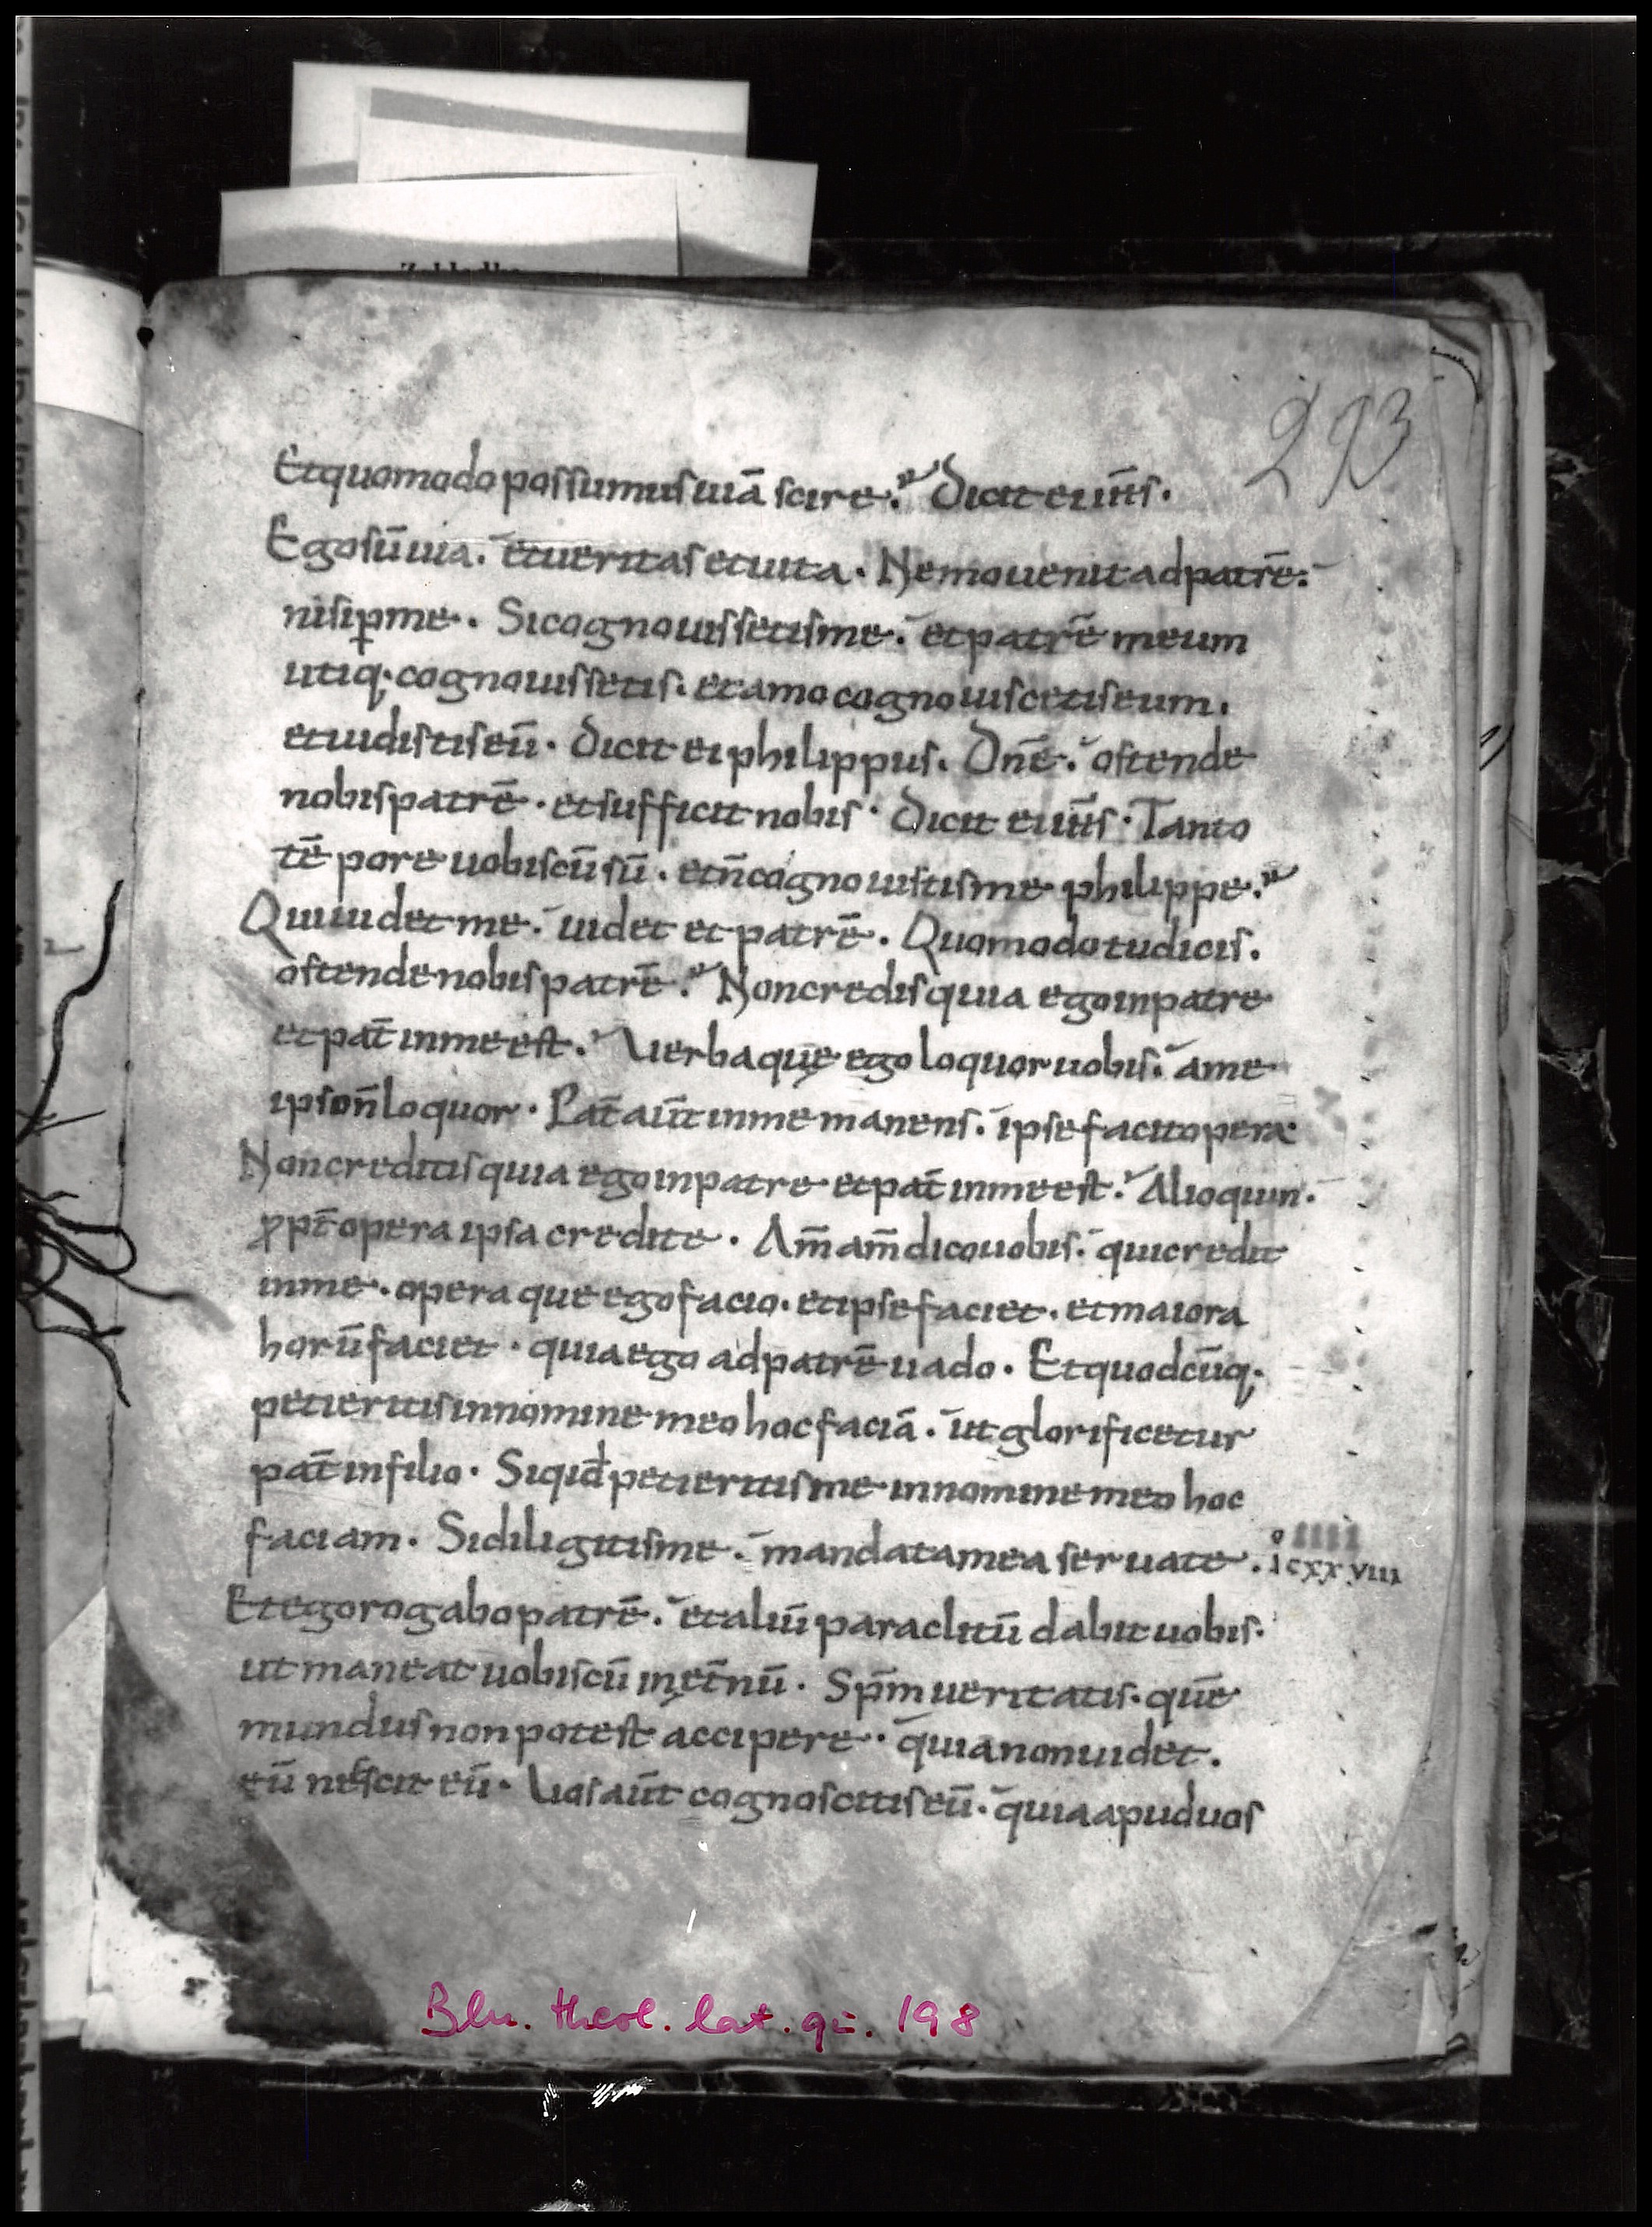 293
Et quomodo possumus uiā scire. Dicit ei ih̄s.
Ego sū uia. et ueritas et uita. Nemo uenit ad patrē.
nisi ꝑ me. Si cognouissetis me. et patrē meum
utiq. cognouissetis. et amo cognouiscetis eum.
et uidistis eū. Dicit ei philippus. Dn̄e. ostende
nobis patrē. et sufficit nobis. Dicit ei ih̄s. Tanto
tē pore uobiscū sū. et n̄ cognouistis me philippe.
Qui uidet me. uidet et patrē. Quomodo tu dicis.
ostende nobis patrē. Non credis quia ego in patre
et pat̄ in me est. Uerba quę ego loquor uobis. a me
ipso n̄ loquor. Pat̄ aūt in me manens. ipse facit opera
Non creditis quia ego in patre et pat̄ in me est. Alioquin.
ꝓpt̄ opera ipsa credite. Am̄ am̄ dico uobis. qui credit
in me. opera que ego facio. et ipse faciet. et maiora
horū faciet. quia ego ad patrē uado. Et quodcūq.
petieritis in nomine meo hoc faciā. ut glorificetur
pat̄ in filio. Si qid petieritis me in nomine meo hoc
faciam. Si diligitis me. mandata mea seruate.
IIII
icxxviii
Et ego rogabo patrē. et aliū paraclitū dabit uobis.
ut maneat uobiscū in ęt̄nū. Sp̄m ueritatis. quē
mundus non potest accipere. quia non uidet.
eū nescit eū. Uos aūt cognoscitis eū. quia apud uos
Bln. theol. lat. qu. 198